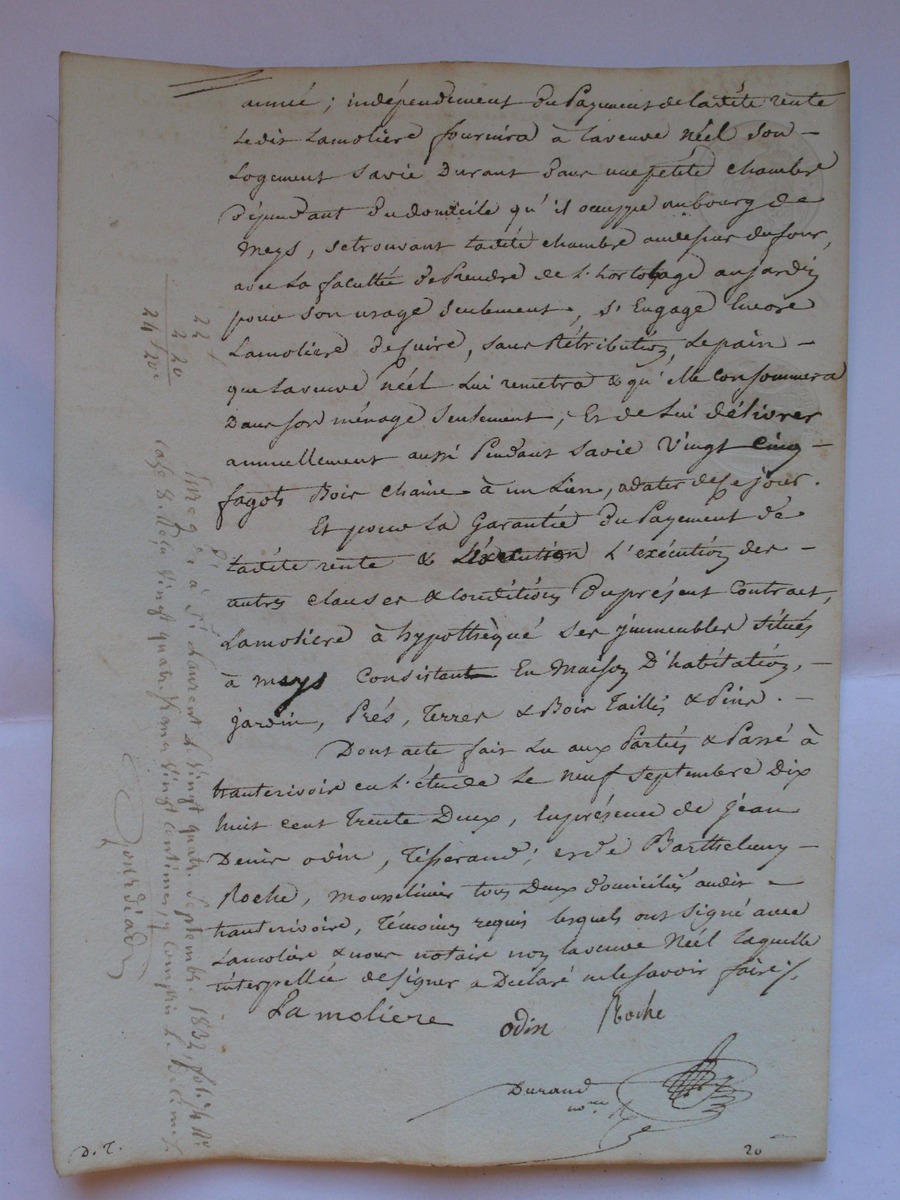 année ; indépendement du Payement de ladite rente
Ledit Lamoliere fournira à la veuve Néel Son
Logement Sa vie Durant Dans une petite chambre
Dépendant du domicile qu'il occuppe au bourg de
Meys, se trouvant ladite chambre au dessus du four,
avec La faculté de Prendre de L'hortolage au jardin
pour Son usage Seulement, S'Engage Encore
Lamoliere de cuire, Sans Rétribution, Le pain
que La veuve Néel Lui remetra & qu'elle consommera
Dans son ménage Seulement ; Et de Lui délivrer
annuellement aussi Pendant Sa vie Vingt cinq
fagots Bois Chaine à un Lien, a dater de ce jour.
Et pour La Garantie du Payement de
ladite rente & L'exécution L'exécution des
autres clauses & conditions du présent Contract,
Lamoliere à hypothèqué Ses jmmeubles Situés
à Meys Consistant En Maison D'habitation,
jardin, Prés, Terres & Bois Taillis & Pins.
Dont acte fait Lu aux Parties & Passé à
hauterivoire en L'étude Le neuf Septembre Dix
huit cent Trente Deux, En présence de jean
Denis odin, Tisserand ; et de Barthelemy
Roche, mousselinier tous Deux domiciliés audit
hauterivoire, Témoins requis lesquels ont Signé avec
Lamoliere & nous notaire non la veuve Néel Laquelle
interpellée de signer a Déclaré ne le Savoir faire ./.
La moliere odin Roche
Durand
nore
D. T.
20
22
2 20
24 20
Enreg à St Laurent le Vingt quatre Septembre 1832, folio
case 8. Reçu Vingt quatre francs Vingt centimes, y compris le Décime